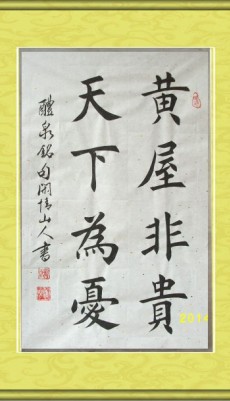 黄屋非貴
天下為憂
醴泉銘句閒情山人書
2014